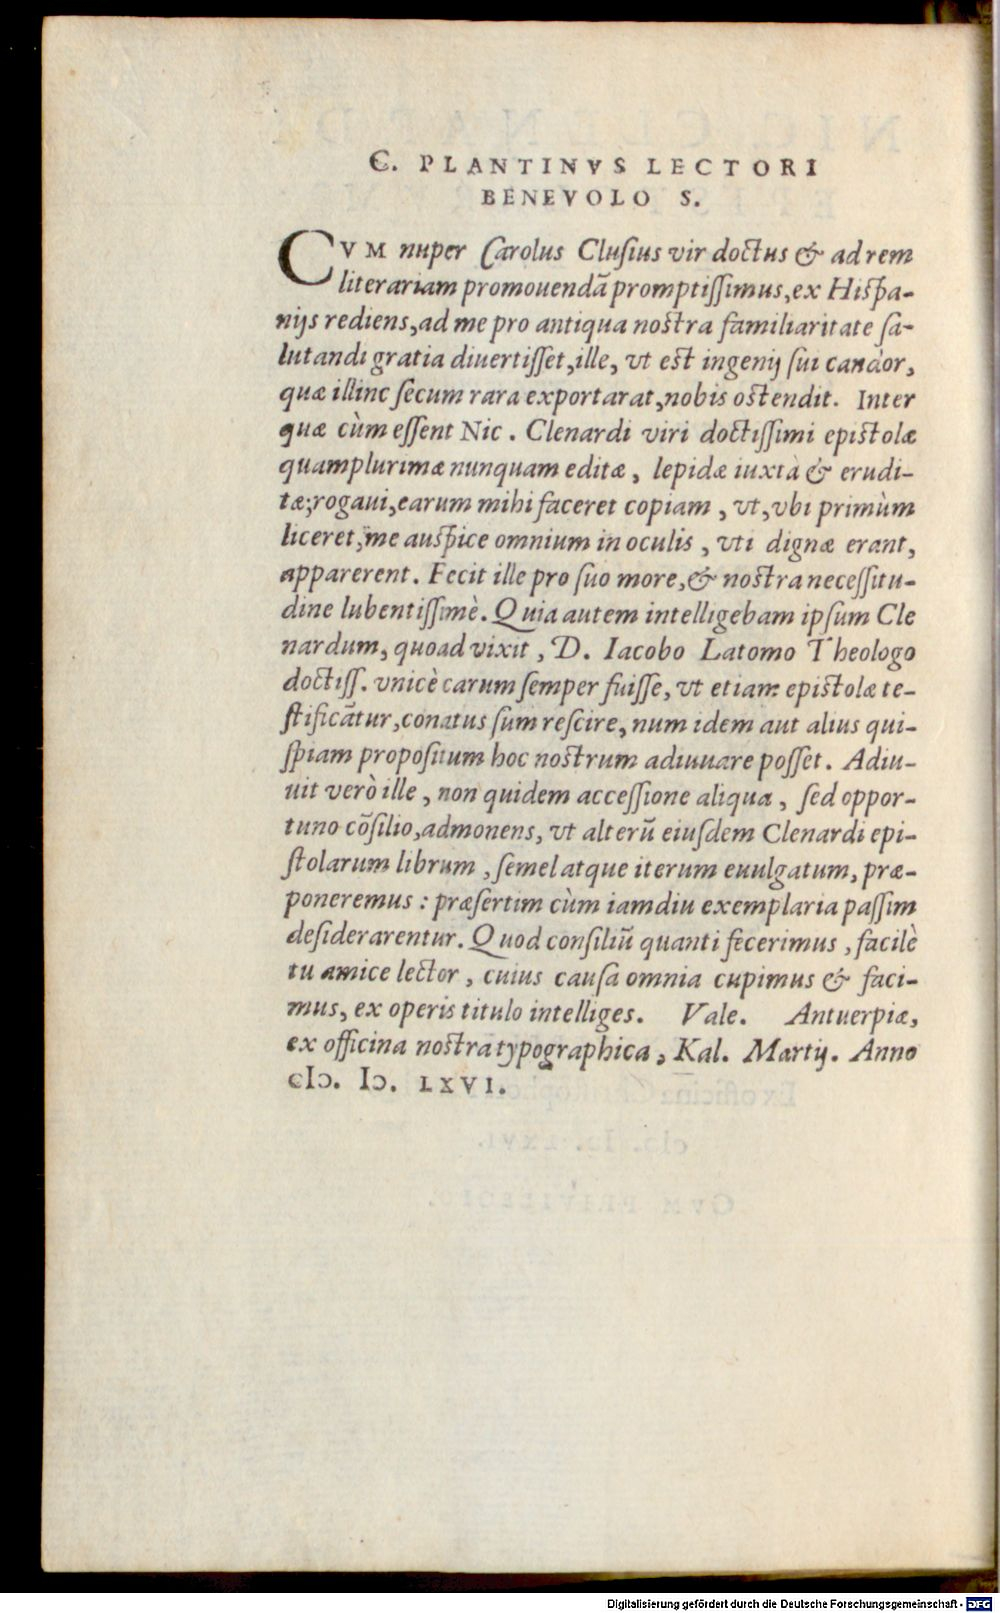 C. PLANTINVS LECTORI
BENEVOLO S.
CVM nuper Carolus Clusius vir doctus & ad rem
literariam promouendā promptissimus, ex Hispa-
nijs rediens, ad me pro antiqua nostra familiaritate sa-
lutandi gratia diuertisset, ille, vt est ingenij sui candor,
quæ illinc secum rara exportarat, nobis ostendit. Inter
quæ cùm essent Nic. Clenardi viri doctissimi epistolæ
quamplurimæ nunquam editæ, lepidæ iuxtà & erudi-
tæ; rogaui, earum mihi faceret copiam, vt, vbi primùm
liceret, me auspice omnium in oculis, vti dignæ erant,
apparerent. Fecit ille pro suo more, & nostra necessitu-
dine lubentissimè. Quia autem intelligebam ipsum Cle
nardum, quoad vixit, D. Iacobo Latomo Theologo
doctiss. vnicè carum semper fuisse, vt etiam epistolæ te-
stificātur, conatus sum rescire, num idem aut alius qui-
spiam propositum hoc nostrum adiuuare posset. Adiu-
uit verò ille, non quidem accessione aliqua, sed oppor-
tuno cōsilio, admonens, vt alterū eiusdem Clenardi epi-
stolarum librum, semel atque iterum euulgatum, præ-
poneremus: præsertim cùm iamdiu exemplaria passim
desiderarentur. Quod consiliū quanti fecerimus, facilè
tu amice lector, cuius causa omnia cupimus & faci-
mus, ex operis titulo intelliges. Vale. Antuerpiæ,
ex officina nostra typographica, Kal. Martij. Anno
cIɔ. Iɔ. LXVI.
Digitalisierung gefördert durch die Deutsche Forschungsgemeinschaft - DFG